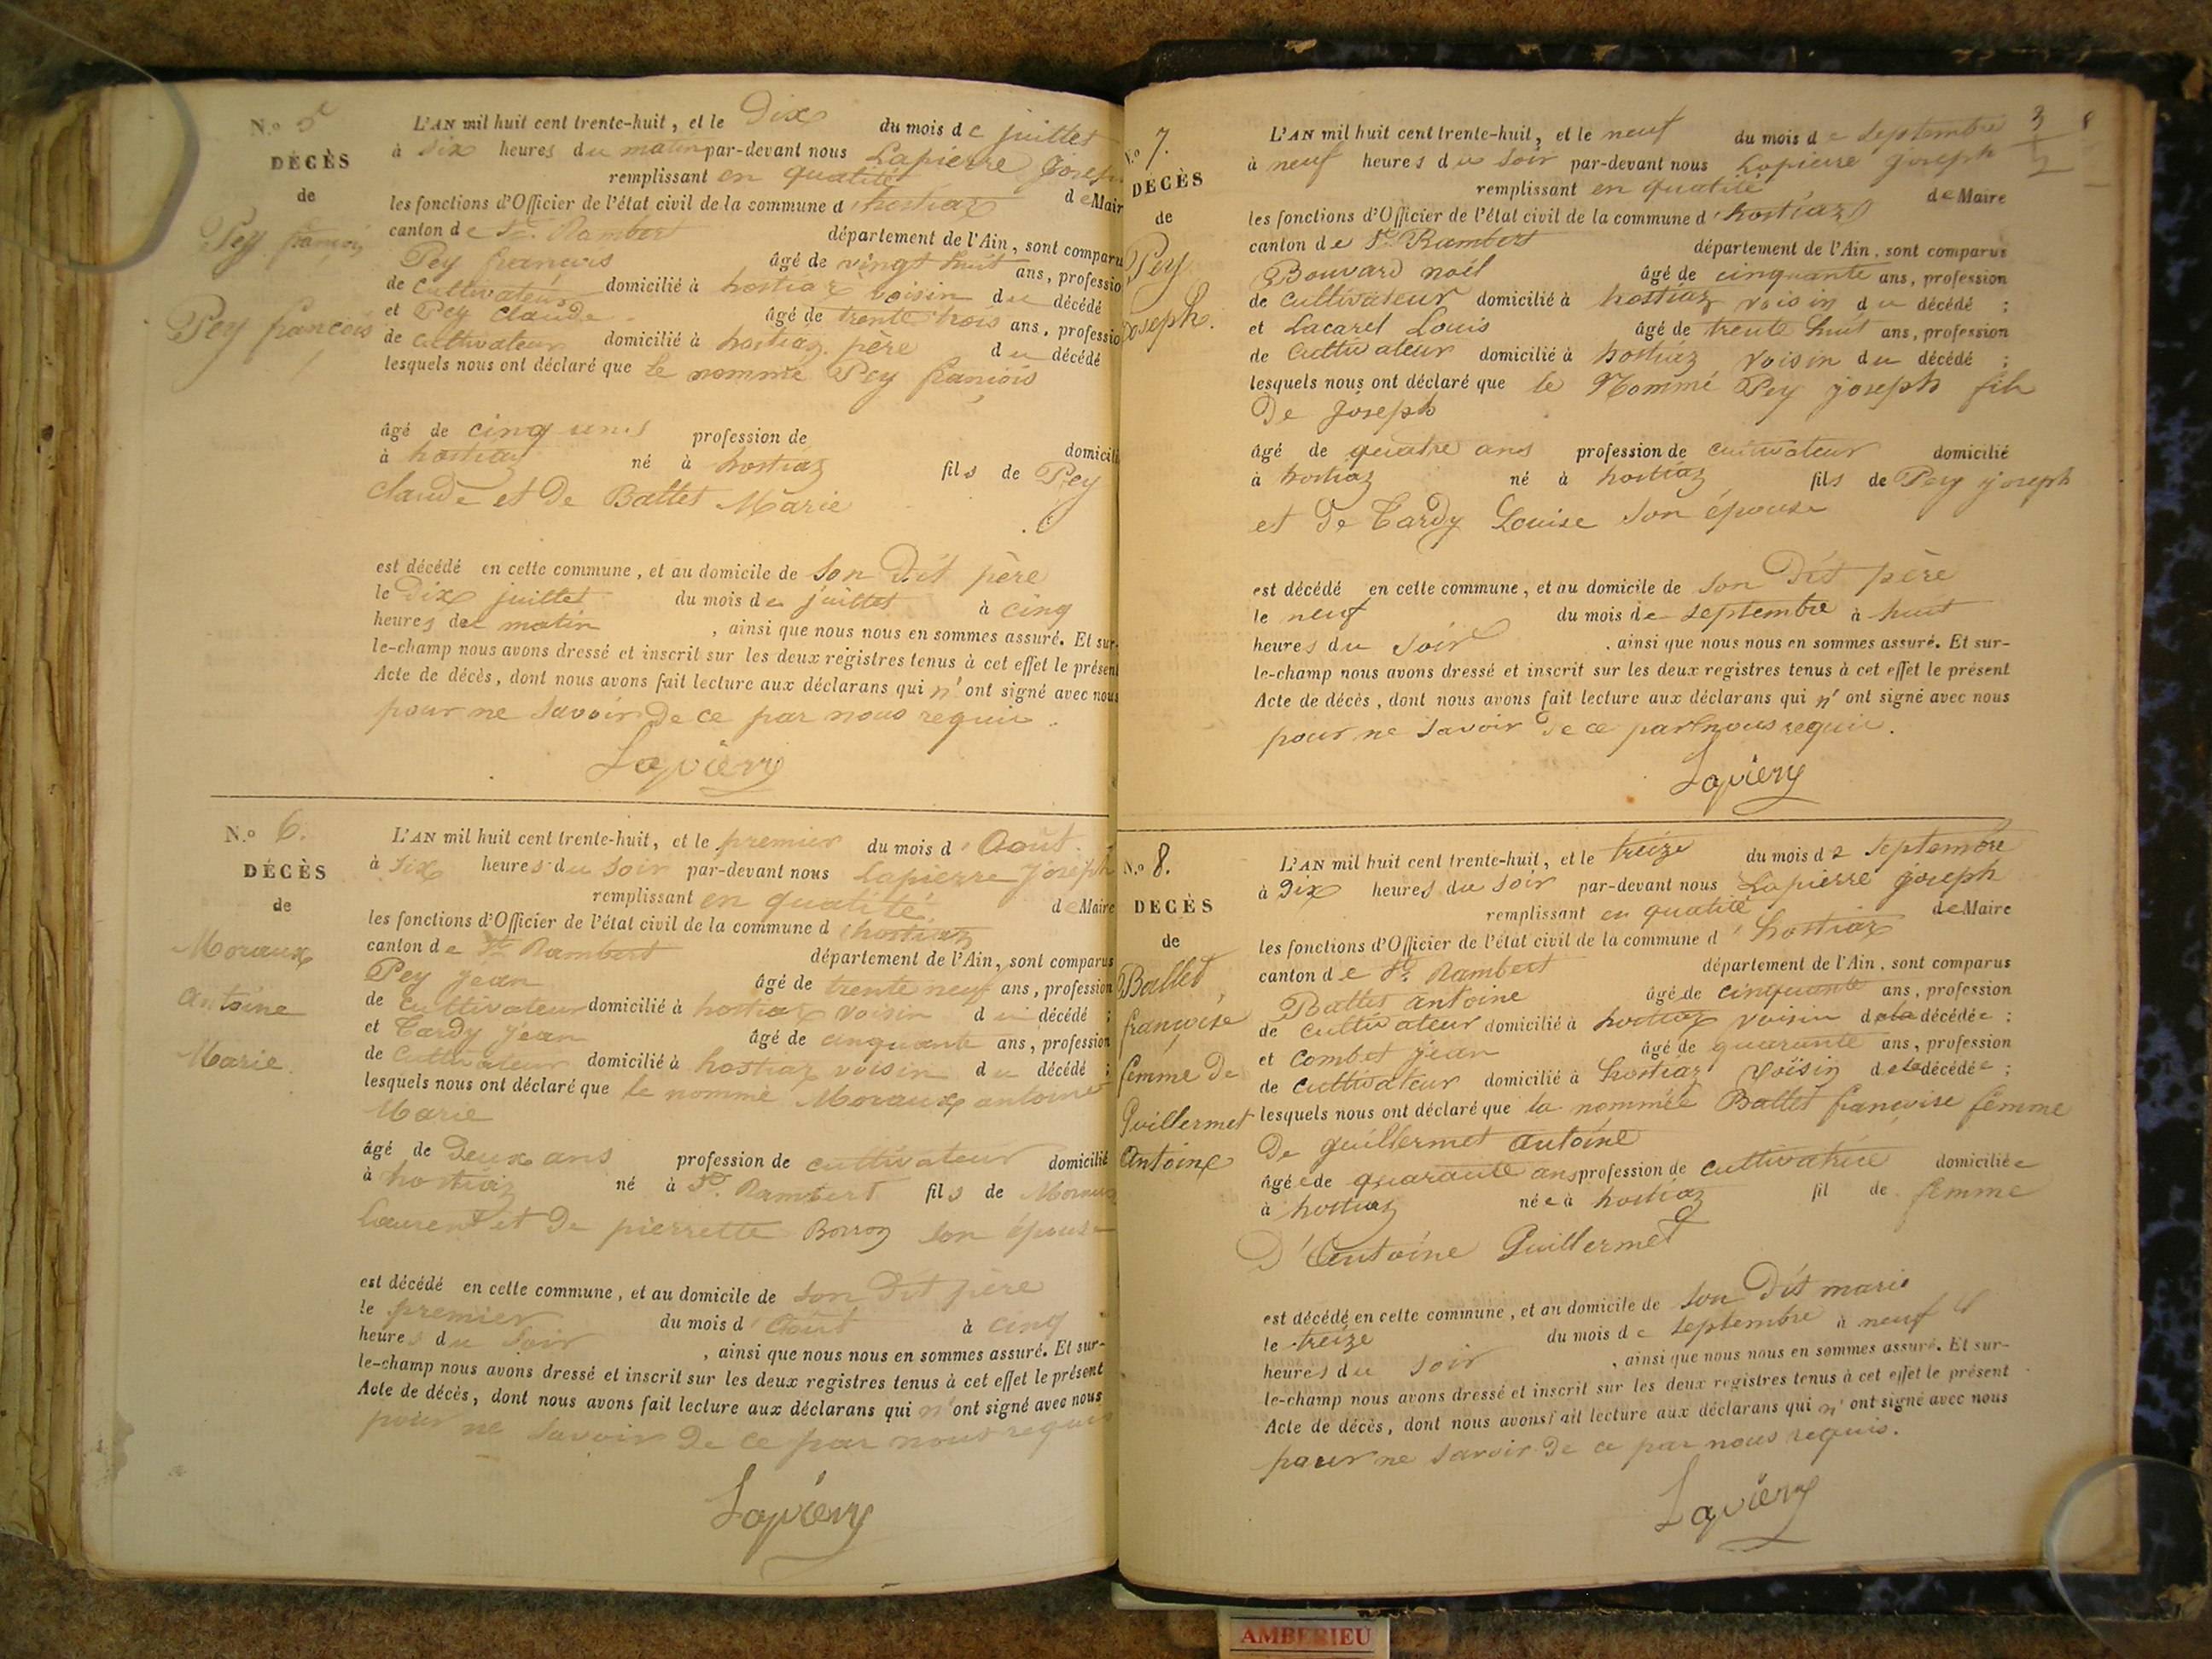 N.o 5
DÉCÈS
de
Pey françois
Pey françois
L'AN mil huit cent trente-huit, et le Dix du mois de juillet
à six heures du matin par-devant nous Lapierre Joseph
remplissant en qualité de Maire
les fonctions d'Officier de l'état civil de la commune d'hostiaz
canton de St. Rambert département de l'Ain, sont comparus
Pey françois âgé de vingt huit ans, profession
de cultivateur domicilié à hostiaz voisin du décédé
et Pey Claude âgé de trente trois ans, profession
de cultivateur domicilié à hostiaz père du décédé
lesquels nous ont déclaré que le nommé Pey françois
âgé de cinq ans profession de domicilié
à hostiaz né à hostiaz fils de Pey
Claude et De Ballet Marie
est décédé en cette commune, et au domicile de son Dit père
le Dix juillet du mois de juillet à cinq
heures du matin, ainsi que nous nous en sommes assuré. Et sur-
le-champ nous avons dressé et inscrit sur les deux registres tenus à cet effet le présent
Acte de décès, dont nous avons fait lecture aux déclarans qui n'ont signé avec nous
pour ne savoir De ce par nous requis.
Lapierre
N.o 6.
DÉCÈS
de
Moraux
Antoine
Marie
L'AN mil huit cent trente-huit, et le premier du mois d'Août
à six heures du soir par-devant nous Lapierre Joseph
remplissant en qualité de Maire
les fonctions d'Officier de l'état civil de la commune d'hostiaz
canton de St. Rambert département de l'Ain, sont comparus
Pey Jean âgé de trente neuf ans, profession
de cultivateur domicilié à hostiaz voisin du décédé ;
et Tardy Jean âgé de cinquante ans, profession
de cultivateur domicilié à hostiaz voisin du décédé ;
lesquels nous ont déclaré que le nommé Moraux antoine
Marie
âgé de Deux ans profession de cultivateur domicilié
à hostiaz né à St. Rambert fils de Moraux
Laurent et De pierrette Borron son épouse
est décédé en cette commune, et au domicile de son Dit père
le premier du mois d'Août à cinq
heures du soir, ainsi que nous nous en sommes assuré. Et sur-
le-champ nous avons dressé et inscrit sur les deux registres tenus à cet effet le présent
Acte de décès, dont nous avons fait lecture aux déclarans qui n'ont signé avec nous
pour ne savoir De ce par nous requis
Lapierre
3
2
8
N.o 7.
DÉCÈS
de
Pey
Joseph.
L'AN mil huit cent trente-huit, et le neuf du mois de Septembre
à neuf heures du soir par-devant nous Lapierre joseph
remplissant en qualité de Maire
les fonctions d'Officier de l'état civil de la commune d'hostiaz
canton de St. Rambert département de l'Ain, sont comparus
Bouvard noël âgé de cinquante ans, profession
de cultivateur domicilié à hostiaz voisin du décédé ;
et Lacarel Louis âgé de trente huit ans, profession
de Cultivateur domicilié à hostiaz voisin du décédé ;
lesquels nous ont déclaré que le Nommé Pey joseph fils
De Joseph
âgé de quatre ans profession de cultivateur domicilié
à hostiaz né à hostiaz fils de Pey joseph
et De Tardy Louise son épouse
est décédé en cette commune, et au domicile de son Dit père
le neuf du mois de septembre à huit
heures du soir, ainsi que nous nous en sommes assuré. Et sur-
le-champ nous avons dressé et inscrit sur les deux registres tenus à cet effet le présent
Acte de décès, dont nous avons fait lecture aux déclarans qui n'ont signé avec nous
pour ne savoir De ce par nous requis.
Lapierre
N.o 8.
DÉCÈS
de
Ballet
françoise
femme De
Guillermet
Antoine
L'AN mil huit cent trente-huit, et le treize du mois de Septembre
à Dix heures du soir par-devant nous Lapierre joseph
remplissant en qualité de Maire
les fonctions d'Officier de l'état civil de la commune d'hostiaz
canton de St. Rambert département de l'Ain, sont comparus
Ballet antoine âgé de cinquante ans, profession
de cultivateur domicilié à hostiaz voisin de la décédée ;
et Combet jean âgé de quarante ans, profession
de cultivateur domicilié à hostiaz voisin de la décédée ;
lesquels nous ont déclaré que la nommée Ballet françoise femme
De guillermet antoine
âgée de quarante ans profession de cultivatrice domiciliée
à hostiaz née à hostiaz fil de femme
D'Antoine Guillermet
est décédé en cette commune, et au domicile de son Dit mari
le treize du mois de septembre à neuf
heures du soir, ainsi que nous nous en sommes assuré. Et sur-
le-champ nous avons dressé et inscrit sur les deux registres tenus à cet effet le présent
Acte de décès, dont nous avons fait lecture aux déclarans qui n'ont signé avec nous
pour ne savoir De ce par nous requis.
Lapierre
AMBERIEU